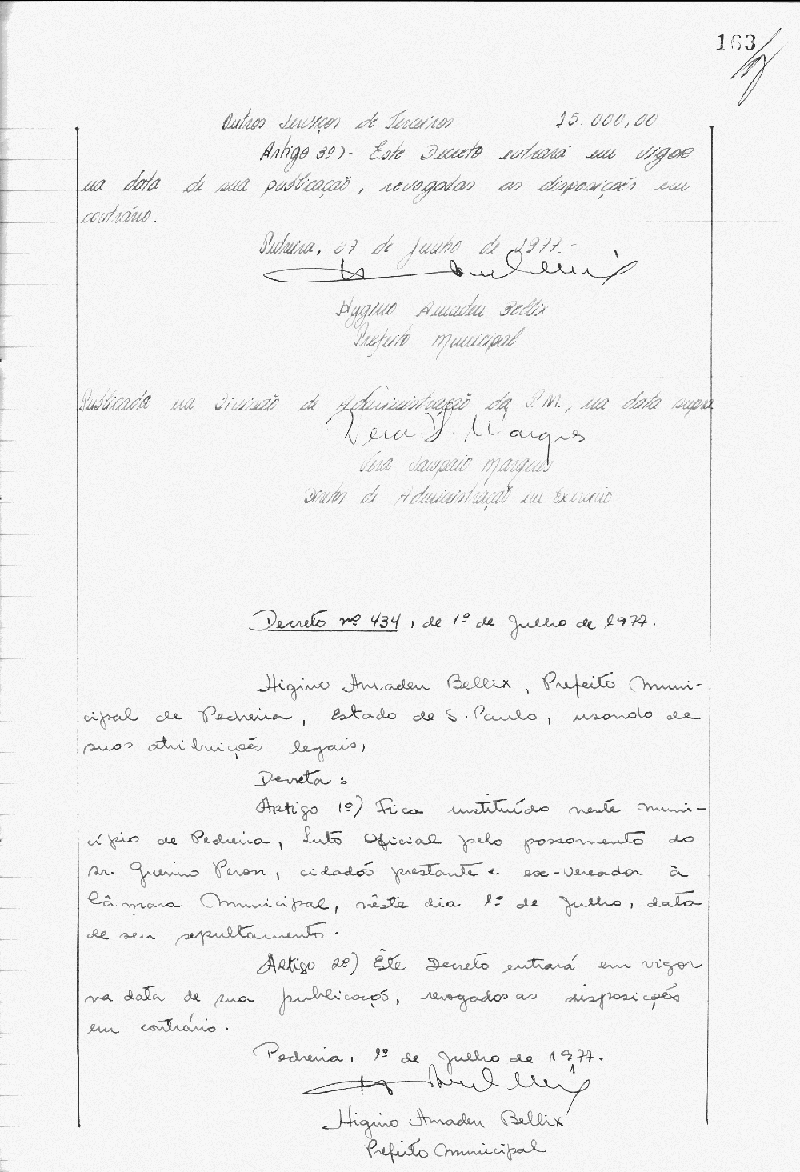 163
Outros Serviços de Terceiros 15.000,00
Artigo 3º)- Este Decreto entrará em vigor
na data de sua publicação, revogadas as disposições em
contrário.
Pedreira, 07 de Junho de 1977.-
Hygino Amadeu Bellix
Prefeito Municipal
Publicada na Divisão de Administração da P.M., na data supra
Vera S. Marques
Vera Sampaio Marques
Diretor de Administração em Exercício
Decreto nº 434, de 1º de Julho de 1977.
Higino Amadeu Bellix, Prefeito Muni-
cipal de Pedreira, Estado de S. Paulo, usando de
suas atribuição legais,
Decreta:
Artigo 1º) Fica instituído neste muni-
cípio de Pedreira, Luto Oficial pelo passamento do
sr. Guerino Peron, cidadão prestante e ex-Vereador à
Câmara Municipal, nêste dia 1º de Julho, data
de seu sepultamento.
Artigo 2º) Êste Decreto entrará em vigor
na data de sua publicação, revogados as disposição
em contrário.
Pedreira, 1º de Julho de 1977.
Higino Amadeu Bellix
Prefeito Municipal